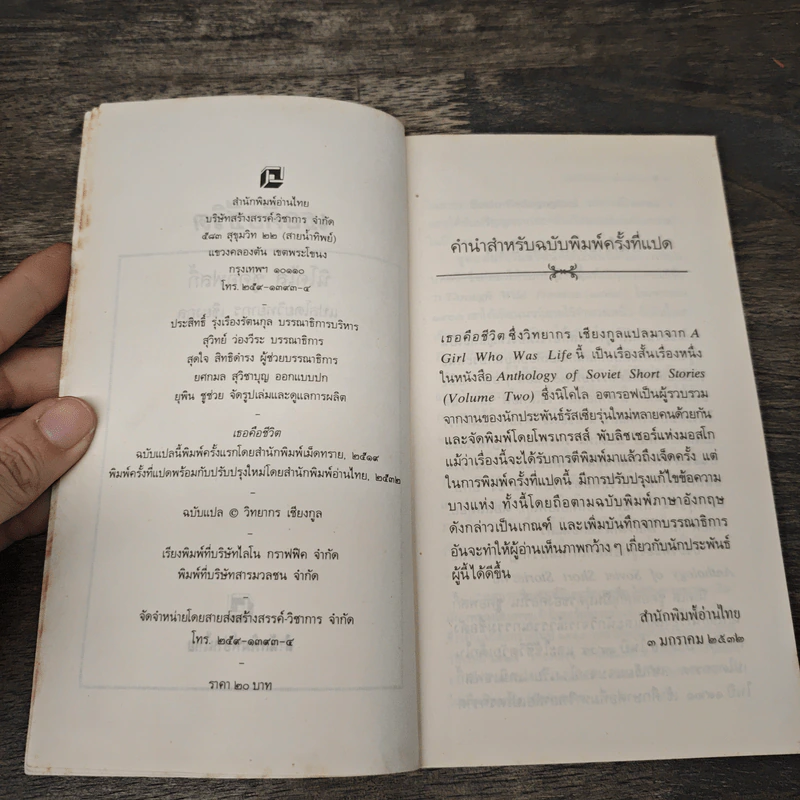 สำนักพิมพ์อ่านไทย
บริษัทสร้างสรรค์-วิชาการ จำกัด
๕๘๓ สุขุมวิท ๒๒ (สายน้ำทิพย์)
แขวงคลองตัน เขตพระโขนง
กรุงเทพฯ ๑๐๑๑๐
โทร. ๒๕๙-๑๓๙๓-๔
–
ประสิทธิ์ รุ่งเรืองรัตนกุล บรรณาธิการบริหาร
สุวิทย์ ว่องวีระ บรรณาธิการ
สุดใจ สิทธิดำรง ผู้ช่วยบรรณาธิการ
ยศกมล สุวิชาบุญ ออกแบบปก
ยุพิน ชูช่วย จัดรูปเล่มและดูแลการผลิต
–
เธอคือชีวิต
ฉบับแปลนี้พิมพ์ครั้งแรกโดยสำนักพิมพ์เม็ดทราย, ๒๕๑๙
พิมพ์ครั้งที่แปดพร้อมกับปรับปรุงใหม่โดยสำนักพิมพ์อ่านไทย, ๒๕๓๒
–
ฉบับแปล © วิทยากร เชียงกูล
–
เรียงพิมพ์ที่บริษัทไลโน กราฟฟิค จำกัด
พิมพ์ที่บริษัทสารมวลชน จำกัด
–
จัดจำหน่ายโดยสายส่งสร้างสรรค์-วิชาการ จำกัด
โทร. ๒๕๙-๑๓๙๓-๔
–
ราคา ๒๐ บาท
คำนำสำหรับฉบับพิมพ์ครั้งที่แปด
เธอคือชีวิต ซึ่งวิทยากร เชียงกูลแปลมาจาก A
Girl Who Was Life นี้ เป็นเรื่องสั้นเรื่องหนึ่ง
ในหนังสือ Anthology of Soviet Short Stories
(Volume Two) ซึ่งนิโคไล อตารอฟเป็นผู้รวบรวม
จากงานของนักประพันธ์รัสเซียรุ่นใหม่หลายคนด้วยกัน
และจัดพิมพ์โดยโพรเกรสส์ พับลิชเชอร์แห่งมอสโก
แม้ว่าเรื่องนี้จะได้รับการตีพิมพ์มาแล้วถึงเจ็ดครั้ง แต่
ในการพิมพ์ครั้งที่แปดนี้ มีการปรับปรุงแก้ไขข้อความ
บางแห่ง ทั้งนี้โดยถือตามฉบับพิมพ์ภาษาอังกฤษ
ดังกล่าวเป็นเกณฑ์ และเพิ่มบันทึกจากบรรณาธิการ
อันจะทำให้ผู้อ่านเห็นภาพกว้าง ๆ เกี่ยวกับนักประพันธ์
ผู้นี้ได้ดีขึ้น
สำนักพิมพ์อ่านไทย
๓ มกราคม ๒๕๓๒